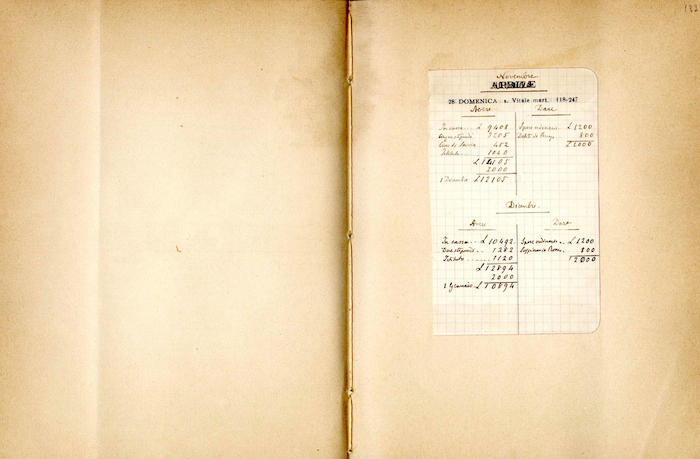 132
Novembre
APRILE
28 DOMENICA s. Vitale mart. 118-247
Avere Dare
In cassa £ 9408 Spese ordinarie £ 1200
1205 Debito di 800
452 £ 2000
Istituto 1040
£ 12105
2000
1 Dicembre £ 12105
Dicembre
Avere Dare
In cassa £ 10492 Spese ordinarie £ 1200
Due stipendi 1282 800
Istituto 1120 £ 2000
£ 12894
2000
1 Gennaio £ 10894